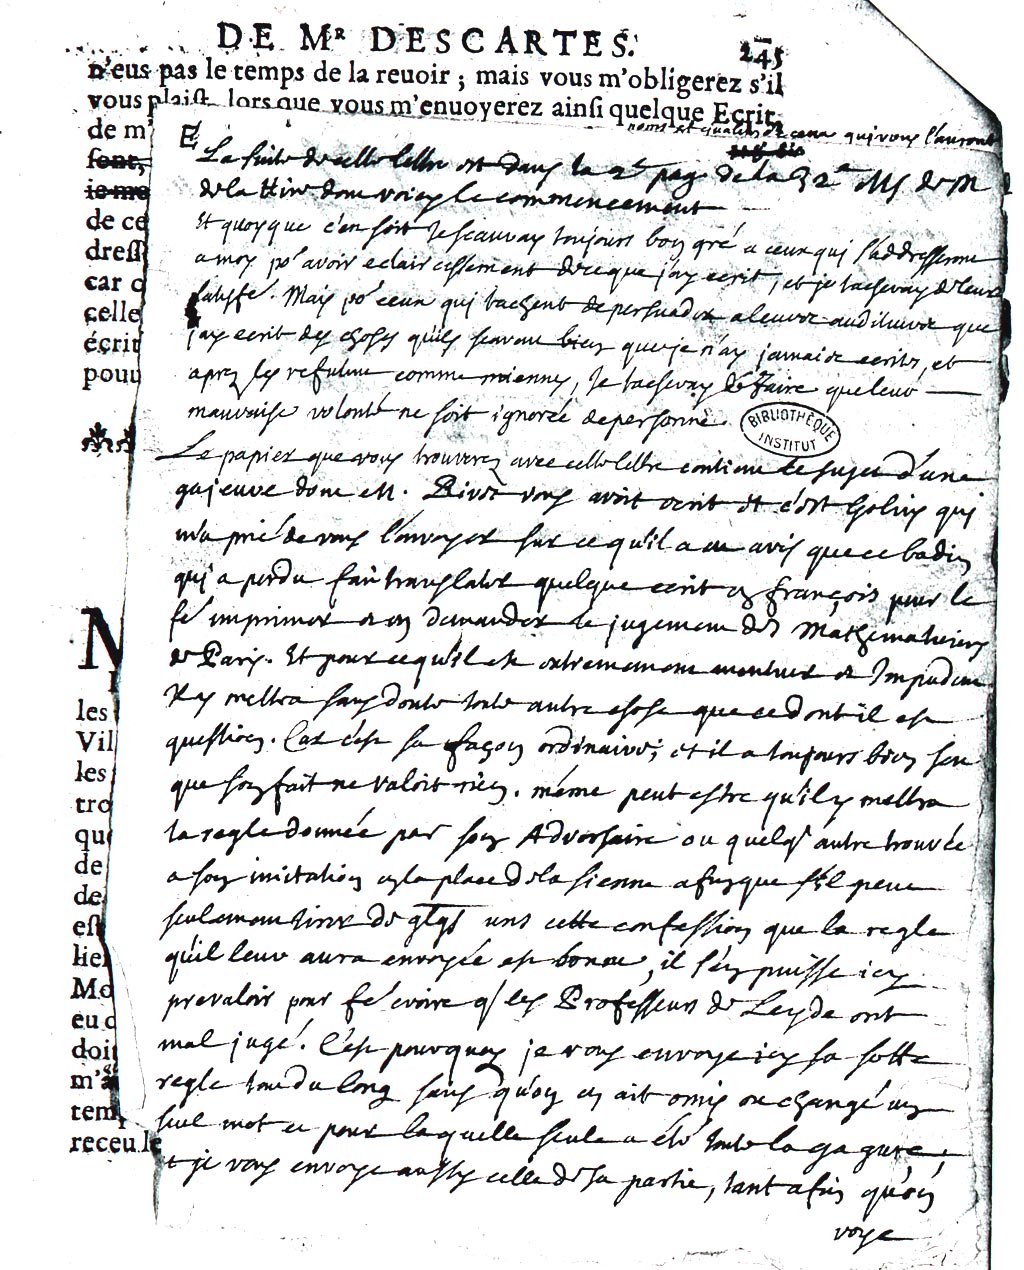 DE Mʀ DESCARTES. 245
n'eus pas le temps de la reuoir ; mais vous m'obligerez s'il
vous plaist, lors que vous m'enuoyerez ainsi quelque Ecrit,
de m'
noms et qualitez de ceux qui vous l'auront
font,
ie me
de ce
dress
car c
celle
écrit
pouu
La suite de cette lettre est dans la 2e page de la 32e MS de M
de la Hire dont voicy le commencement
Et quoyque c'en soit je scauray toujours bon gré a ceux qui s'addressent
a moy pr avoir eclaircissement de ce que j'ay ecrit, et je tascheray de leur
satisfe. Mais pr ceux qui taschent de persuader a leurs auditeurs que
j'ay ecrit des choses qu'ils scavent bien que je n'ay jamais ecrites, et
apres les refutent comme miennes, je tascheray de faire que leur
mauvaise volonté ne soit ignorée de personne.
BIBLIOTHÈQUE INSTITUT
Le papier que vous trouverez avec cette lettre contient le sujet d'une
gajeure dont M. Rivet vous avoit ecrit et c'est Golius qui
m'a prié de vous l'envoyer sur ce qu'il a eu avis que ce badin
qui a perdu fait translater quelque ecrit en françois pour le
fé imprimer et en demander le jugement des Mathematiciens
de Paris. Et pour ce qu'il est extremement menteur et Impudent
Il y mettra sans doute toute autre chose que ce dont il est
question. Car c'est sa façon ordinaire; et il a toujours bien sceu
que son fait ne valoit rien. même peut estre qu'il y mettra
la regle donnée par son Adversaire ou quelq' autre trouvée
a son imitation en la place de la sienne afin que s'il peut
seulement tirer de qlqs uns cette confession que la regle
qu'il leur aura envoyée est bonne, il s'en puisse icy
prevaloir pour fé croire q' les Professeurs de Leyde ont
mal jugé. C'est pourquoy je vous envoye icy sa sotte
regle tout du long sans qu'on en ait omis ou changé un
seul mot et pour laquelle seule a été toute la gagure,
et je vous envoye aussy celle de sa partie, tant afin qu'on
voye
N
les
Vil
les
tro
que
de
de
est
lie
Mo
eu d
doit
m'a
temp
receu le